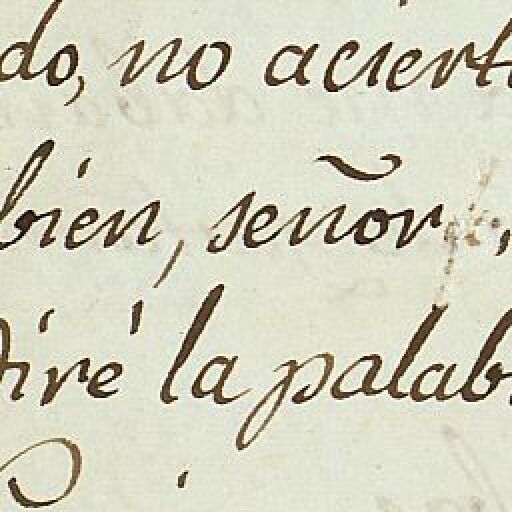 do, no aciert
bien, señor,
diré la palab